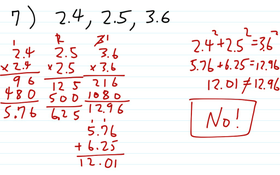 7) 2.4, 2.5, 3.6
2.4
× 2.4
96
480
5.76
2.5
× 2.5
125
500
6.25
3.6
× 3.6
216
1080
12.96
5.76
+ 6.25
12.01
2.4² + 2.5² = 3.6²
5.76 + 6.25 = 12.96
12.01 ≠ 12.96
No!